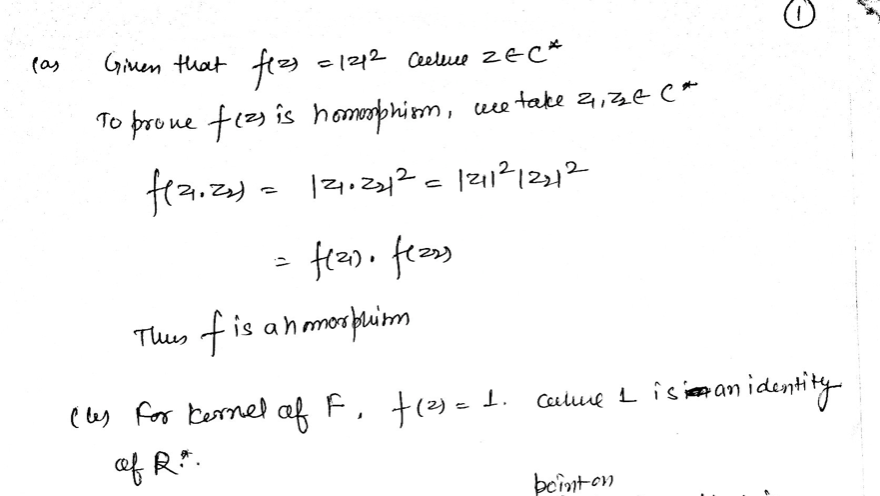 1
(a) Given that f(z) = |z|² where z ∈ C*
To prove f(z) is homorphism, we take z₁, z₂ ∈ C*
f(z₁.z₂) = |z₁.z₂|² = |z₁|² |z₂|²
= f(z₁). f(z₂)
Thus f is a homorphism
(b) For kernel of F, f(z) = 1. where 1 is an identity
of R*.
point on